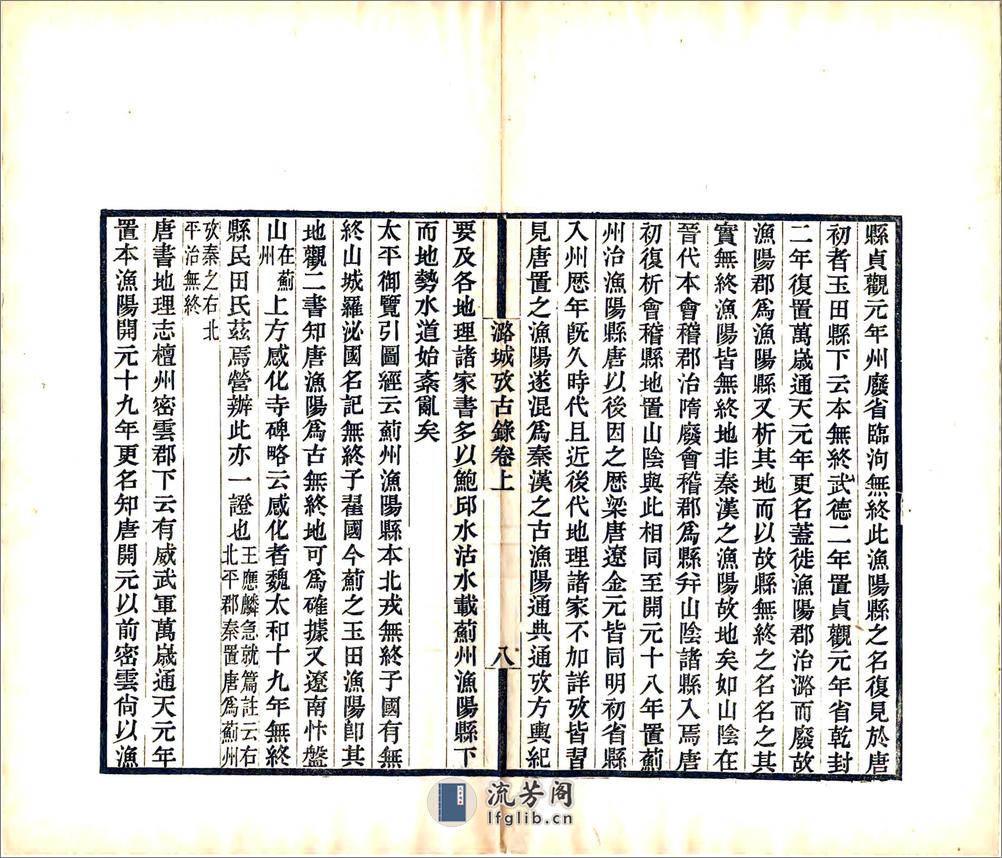 縣貞觀元年州廢省臨泃無終此漁陽縣之名復見於唐
初者玉田縣下云本無終武德二年置貞觀元年省乾封
二年復置萬歲通天元年更名蓋徙漁陽郡治潞而廢故
漁陽郡爲漁陽縣又析其地而以故縣無終之名名之其
實無終漁陽皆無終地非秦漢之漁陽故地矣如山陰在
晉代本會稽郡治隋廢會稽郡爲縣幷山陰諸縣入焉唐
初復析會稽縣地置山陰與此相同至開元十八年置薊
州治漁陽縣唐以後因之歴梁唐遼金元皆同明初省縣
入州歴年旣久時代且近後代地理諸家不加詳攷皆習
見唐置之漁陽遂混爲秦漢之古漁陽通典通攷方輿紀
潞城攷古錄卷上
八
要及各地理諸家書多以鮑邱水沽水載薊州漁陽縣下
而地勢水道始紊亂矣
太平御覽引圖經云薊州漁陽縣本北戎無終子國有無
終山城羅泌國名記無終子翟國今薊之玉田漁陽卽其
地觀二書知唐漁陽爲古無終地可爲確據又遼南忭盤
山在薊州上方感化寺碑略云感化者魏太和十九年無終
縣民田氏茲焉營辦此亦一證也王應麟急就篇註云右北平郡秦置唐爲薊州
攷秦之右北平治無終
唐書地理志檀州密雲郡下云有威武軍萬歲通天元年
置本漁陽開元十九年更名知唐開元以前密雲尙以漁
流芳阁
lfglib.cn